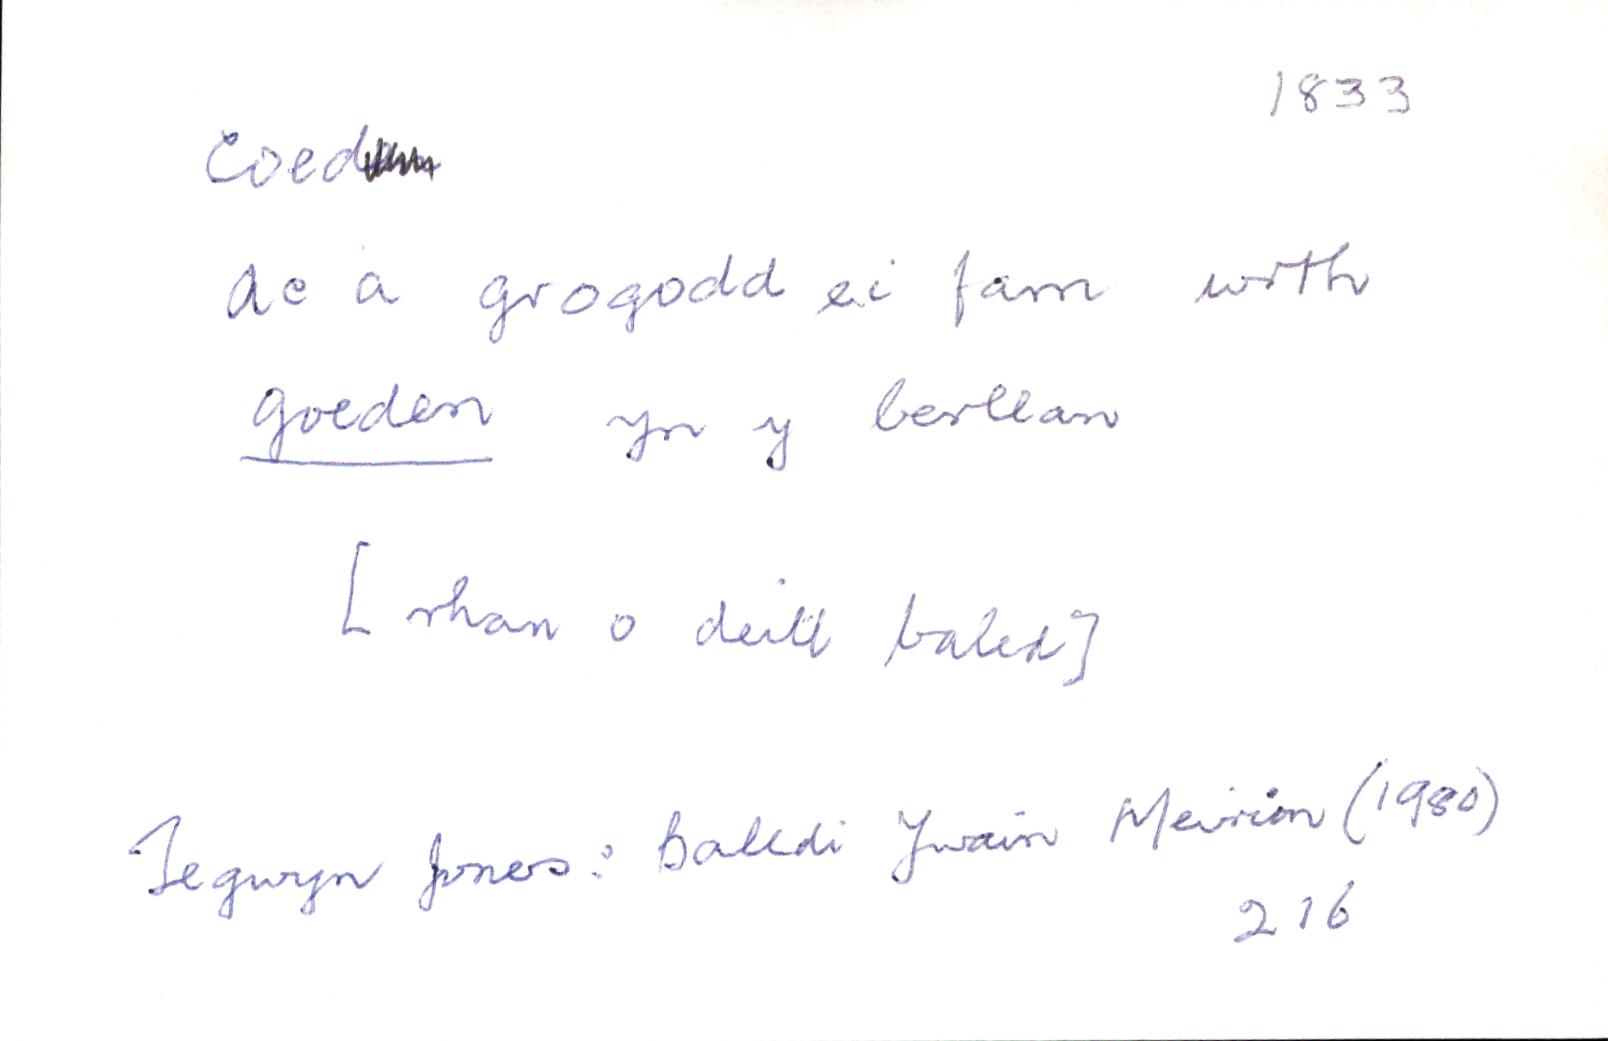 1833
coed
ac a grogodd ei fam wrth
goeden yn y berllan
[rhan o deitl baled]
Tegwyn Jones: Baledi Ywain Meirion (1980)
216